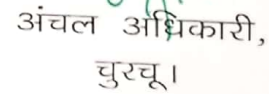 अंचल अधिकारी,
चुरचू।